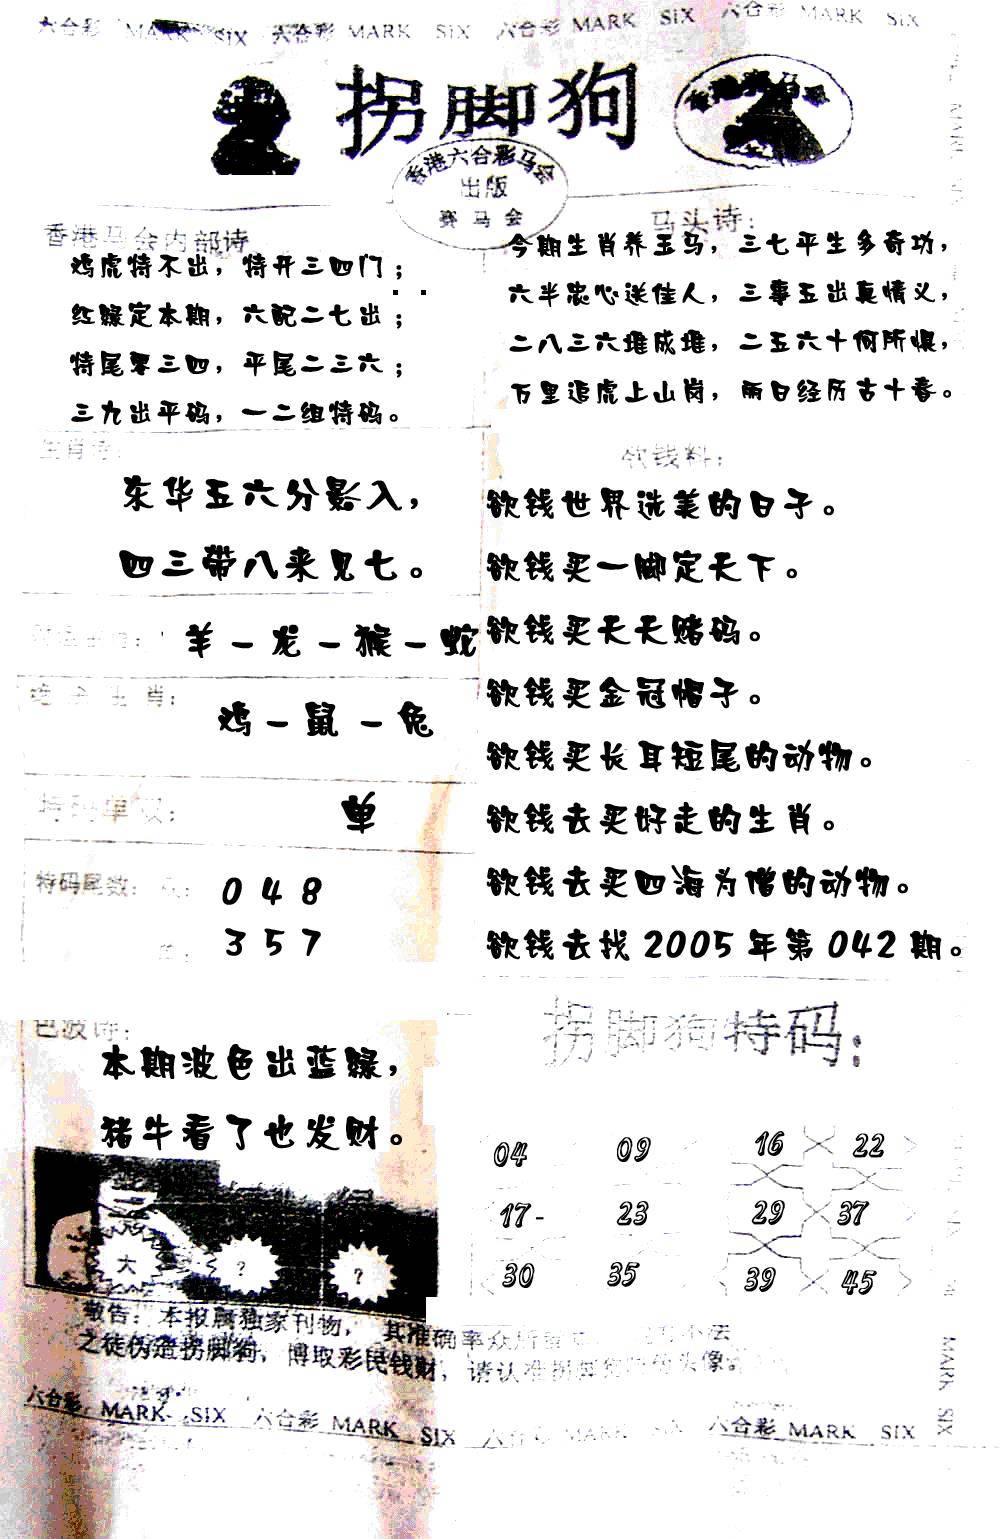 六合彩 MARK SIX 六合彩 MARK SIX 六合彩 MARK SIX 六合彩 MARK SIX
拐脚狗
香港六合彩马会
出版
赛马会
香港马会内部诗
鸡虎特不出，特开三四门；
红绿定本期，六配二七出；
特尾零三四，平尾二三六；
三九出平码，一二组特码。
马头诗：
今期生肖养玉马，三七平生多奇功，
六半忠心送佳人，三事五出真情义，
二八三六堆成堆，二五六十何所惧，
万里追虎上山岗，雨日经历古十春。
生肖诗：
东华五六分影入，
四三带八来见七。
羊－龙－猴－蛇
生肖：
鸡－鼠－兔
特码单双：
单
特码尾数：
0 4 8
3 5 7
欲钱料：
欲钱世界选美的日子。
欲钱买一脚定天下。
欲钱买天天赌码。
欲钱买金冠帽子。
欲钱买长耳短尾的动物。
欲钱去买好走的生肖。
欲钱去买四海为僧的动物。
欲钱去找 2005 年第 042 期。
色波诗：
本期波色出蓝绿，
猪牛看了也发财。
大 ? ?
拐脚狗特码：
04 09 16 22
17- 23 29 37
30 35 39 45
敬告：本报属独家刊物，其准确率众所
之徒伪造拐脚狗，博取彩民钱财，请认准拐脚狗 头像
六合彩 MARK SIX 六合彩 MARK SIX 六合彩 MARK SIX 六合彩 MARK SIX
MARK SIX